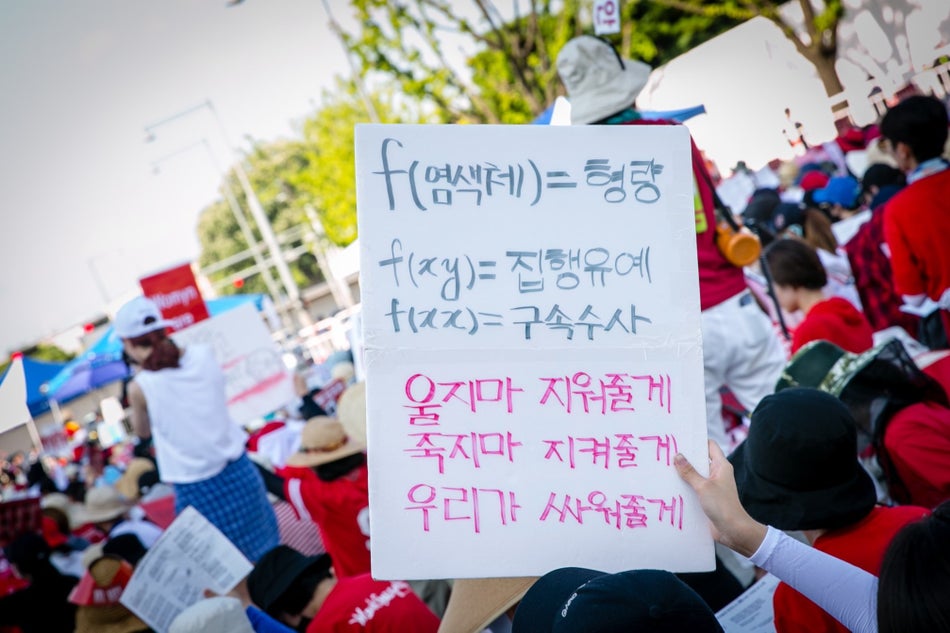 안
f(염색체)= 형량
f(xy)= 집행유예
f(xx)= 구속수사
울지마 지워줄게
죽지마 지켜줄게
우리가 싸워줄게
Womyn